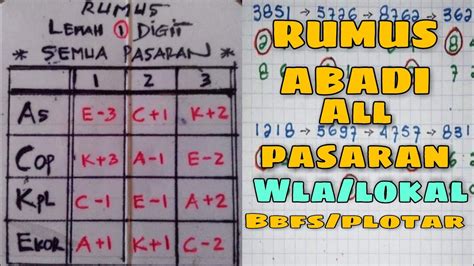 RUMUS
LEMAH 1 DIGIT
* SEMUA PASARAN *
1 2 3
As E-3 C+1 K+2
Cop K+3 A-1 E-2
KPL C-1 E-1 A+2
EKOR A+1 K+1 C-2
3851 5726
RUMUS
ABADI
All
PASARAN
1218 → 5697 → 4757 → 831
Wla/lokal
BBFS/plotar